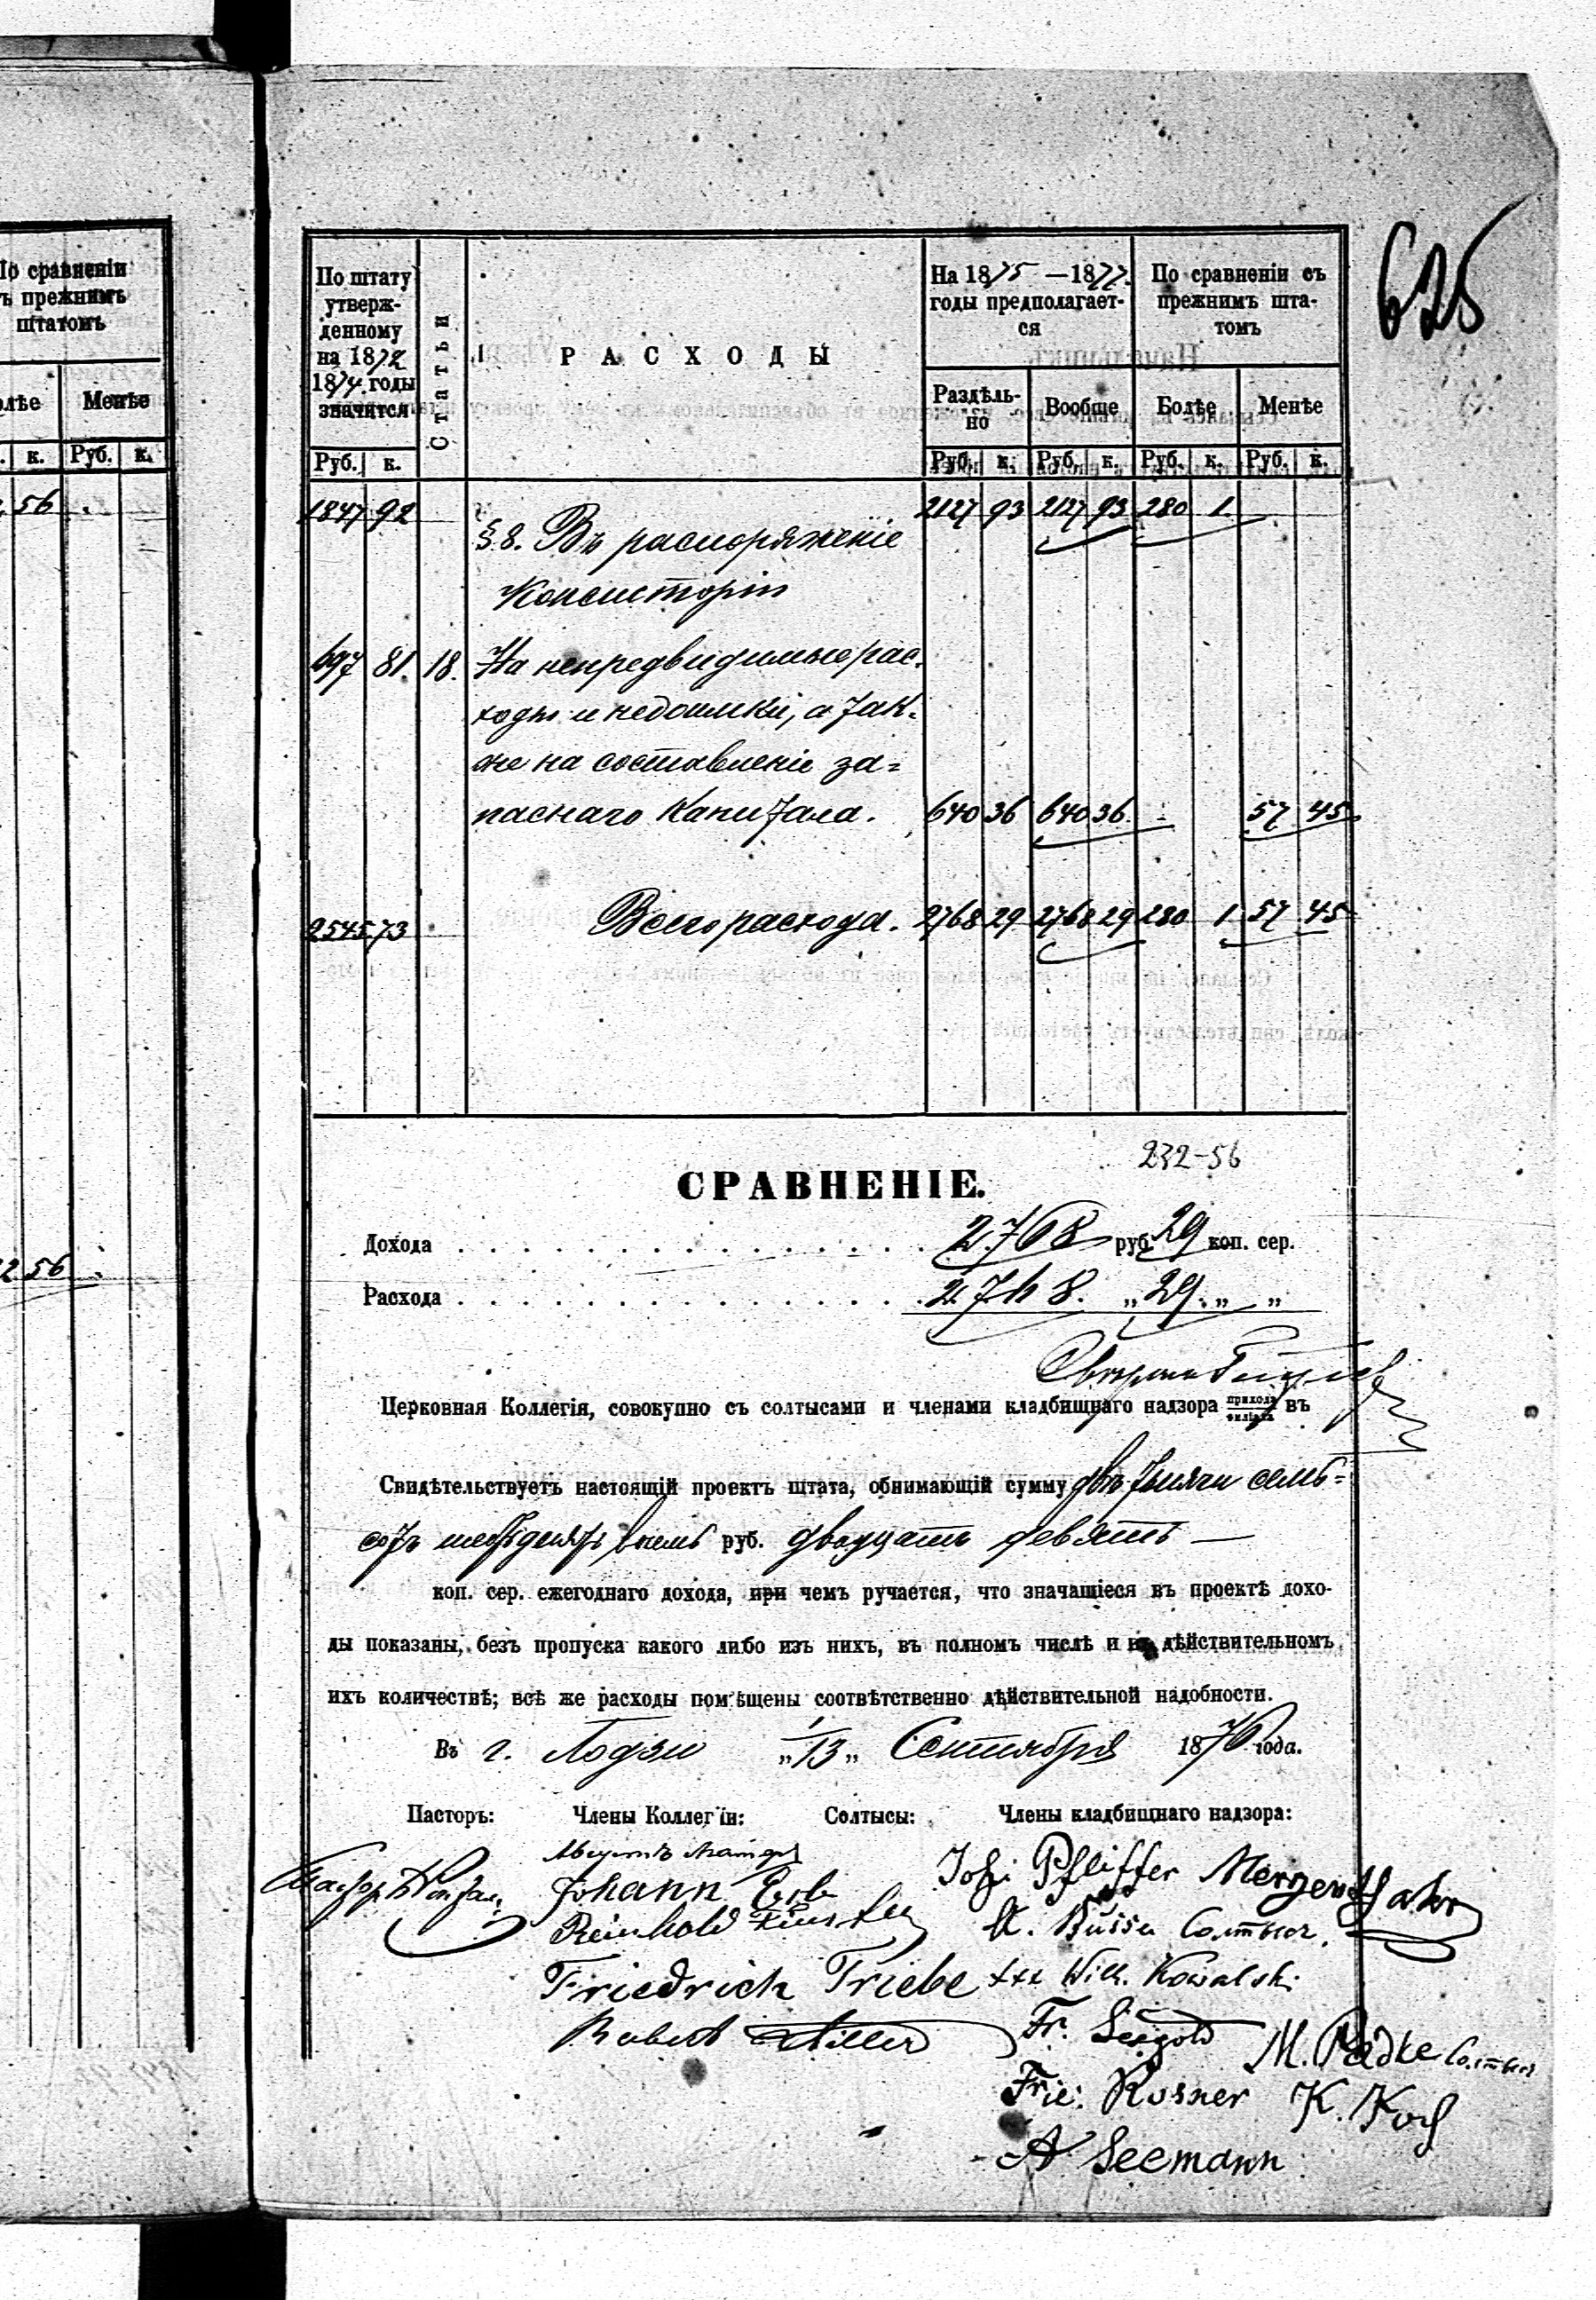 625
По сравненіи
ъ прежнимъ
штатомъ
олѣе Менѣе
к. Руб. к.
56
2 56
По штату
утверж-
денному
на 1872
1874 годы
значится
Статьи
РАСХОДЫ
На 1875 —1877
годы предполагает-
ся
По сравненіи съ
прежнимъ шта-
томъ
Раздѣль-
но
Вообще Болѣе Менѣе
Руб. к. Руб. к. Руб. к. Руб. к. Руб. к.
1847 92 2127 93 2127 93 280 1
§ 8. Въ распоряженіе
Консисторіи
697 81. 18. На непредвидимые рас-
ходы и недоимки, а так-
же на составленіе за=
паснаго капитала. 640 36 640 36 57 45
2545 73 Всего расхода. 2768 29 2768 29 280 1 57 45
232-56
СРАВНЕНІЕ.
Дохода 2768 руб. 29 коп. сер.
Расхода 2768. „ 29. „ „
Церковная Коллегія, совокупно съ солтысами и членами кладбищнаго надзора прихода филіала въ
Свидѣтельствуетъ настоящій проектъ штата, обнимающій сумму двѣ тысячи семь=
сотъ шестьдесятъ восемь руб. двадцать девять —
коп. сер. ежегоднаго дохода, при чемъ ручается, что значащіеся въ проектѣ дохо-
ды показаны, безъ пропуска какого либо изъ нихъ, въ полномъ числѣ и въ дѣйствительномъ
ихъ количествѣ; всѣ же расходы помѣщены соотвѣтственно дѣйствительной надобности.
Въ г. Лодзи „ 1/13 „ Сентября 1876 года.
Пасторъ: Члены Коллегіи: Солтысы: Члены кладбищнаго надзора:
Johann
Joh. Pfeiffer
Reinhold
K. Büsse Солтысъ.
Friedrich Triebe
xxx Wilh. Kowalski
Robert Hiller
Fr. Seigold
M. Radke Солтысъ
Frie: Rosner K. Koch
A Seemann